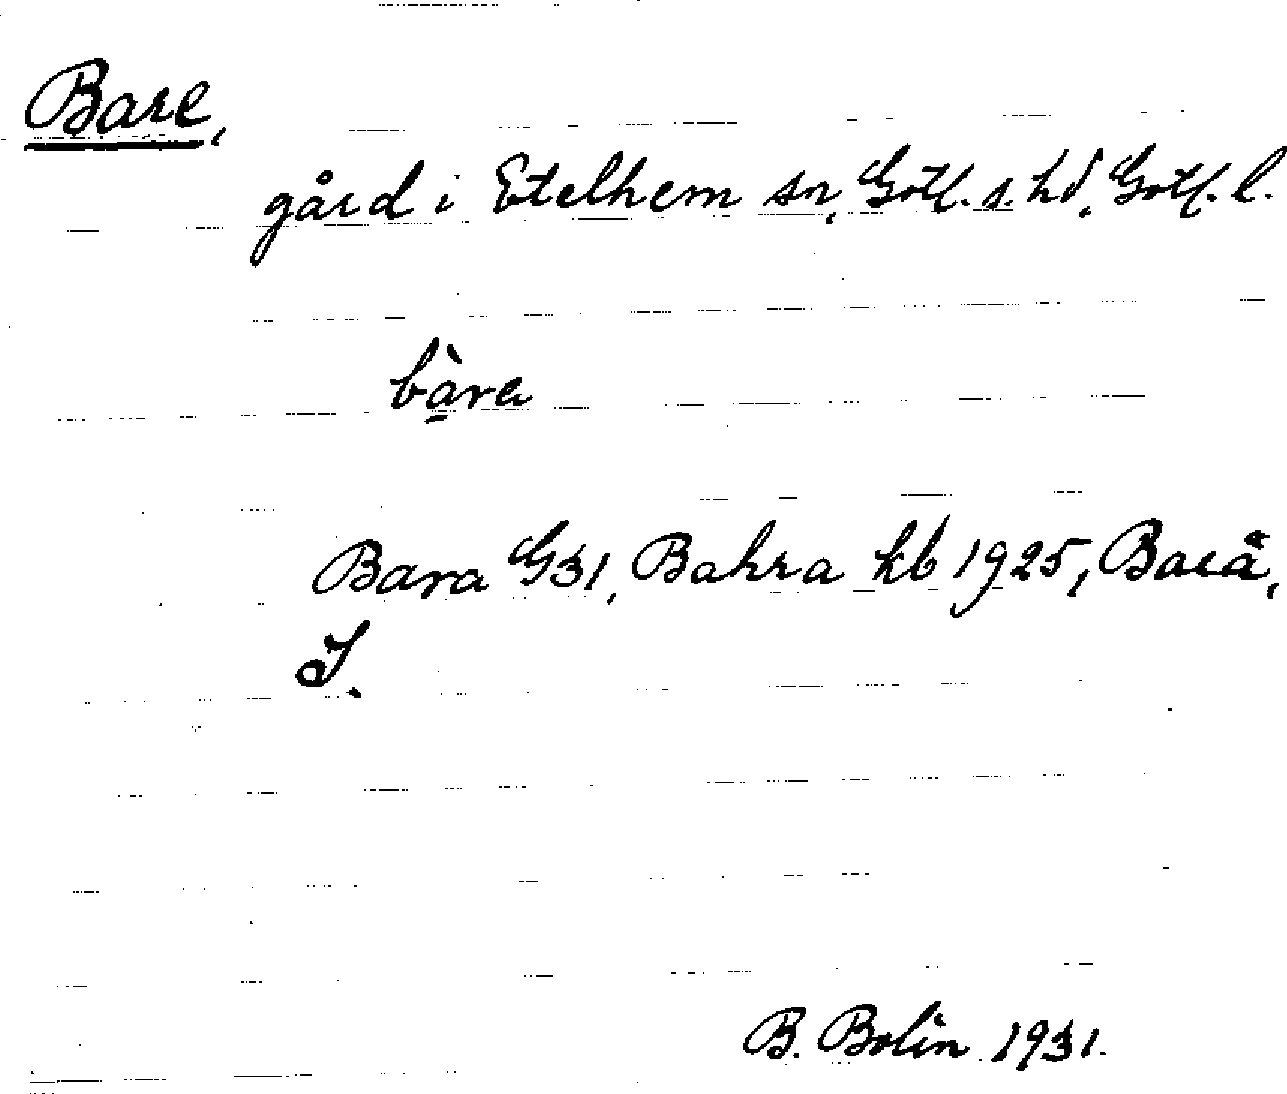 Bare,
gård i Etelhem sn, Gotl. s. hd, Gotl. l.
bà̱ra
Bara G31, Bahra kb 1925, Barå,
J.
B. Bolin 1931.